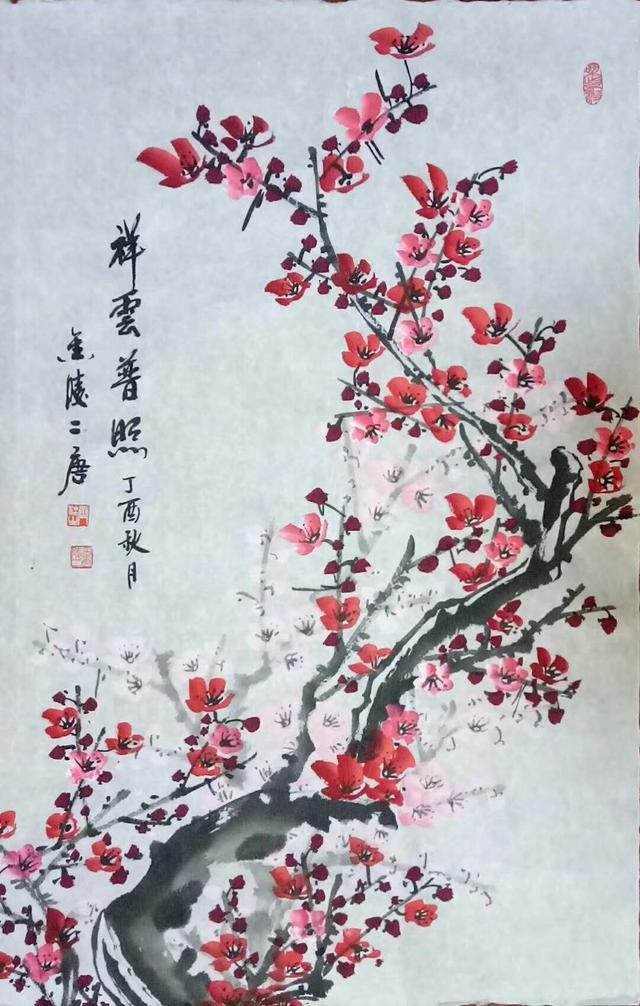 祥雲普照
丁酉秋月
金陵二唐